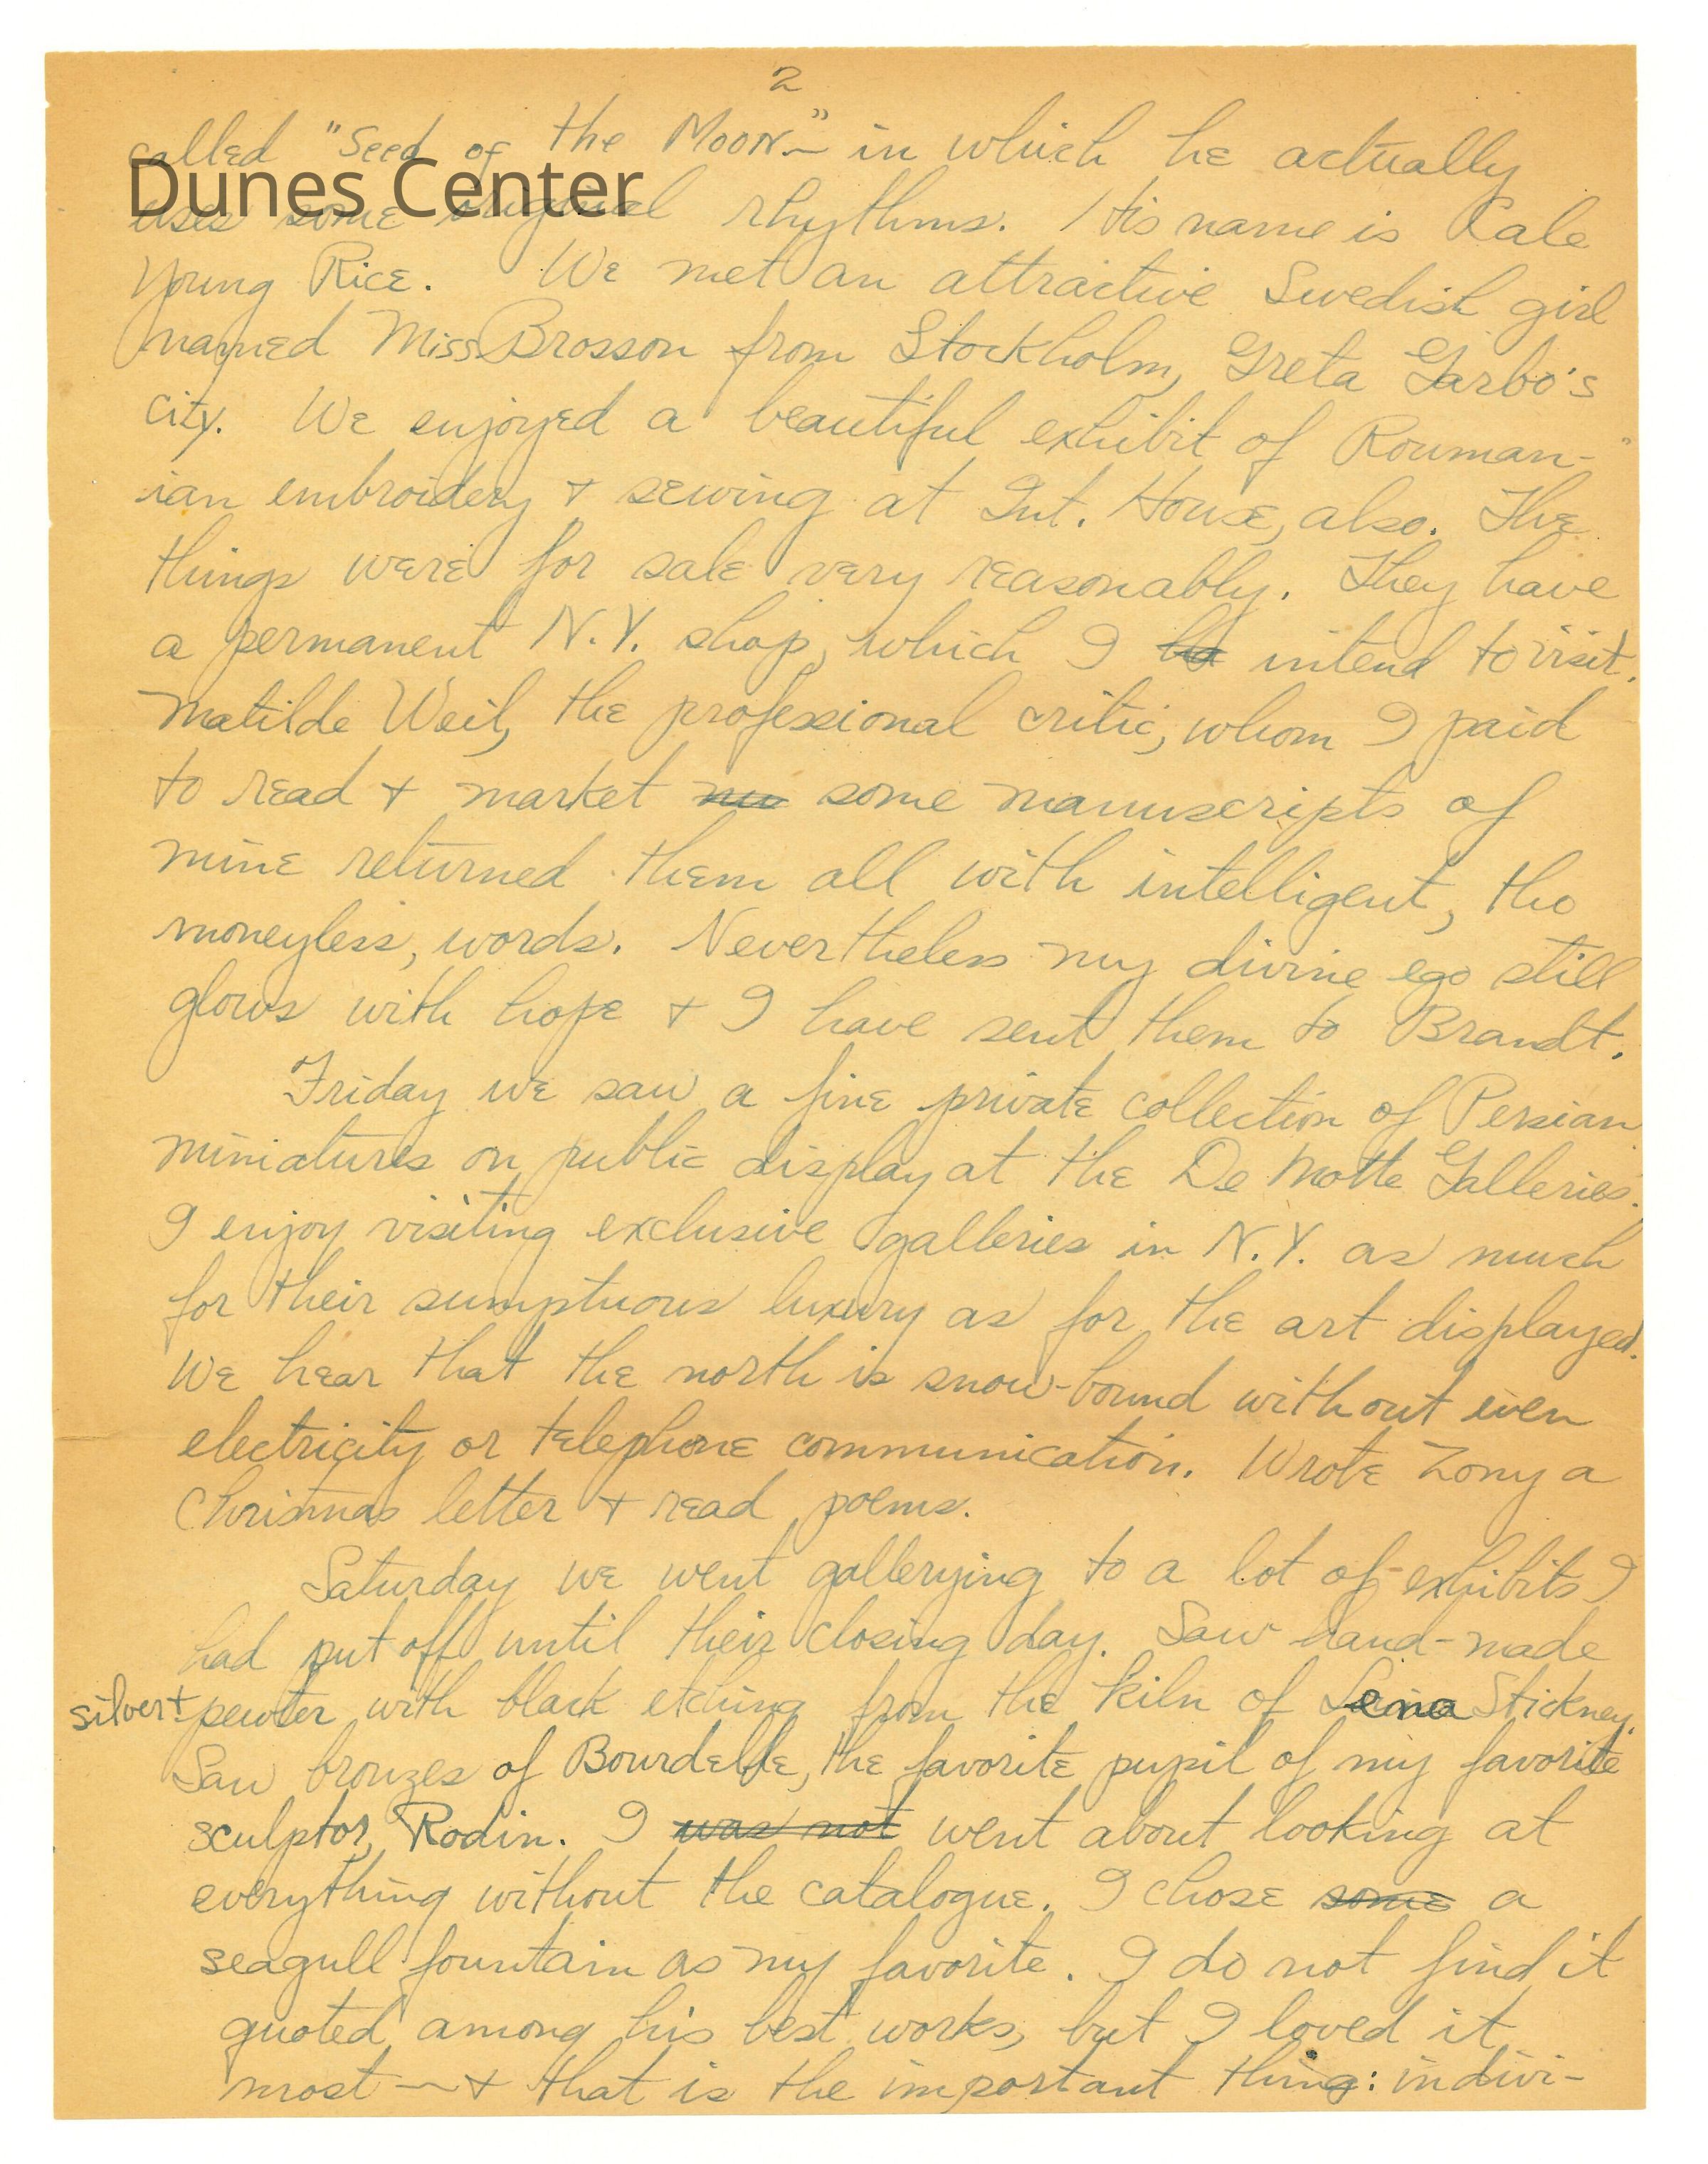 2
called "Seed of the Moon" — in which he actually
Dunes Center
uses some original rhythms. His name is Cale
Young Rice. We met an attractive Swedish girl
named Miss Brosson from Stockholm, Greta Garbo's
city. We enjoyed a beautiful exhibit of Rouman-
ian embroidery + sewing at Int. House, also. The
things were for sale very reasonably. They have
a permanent N.Y. shop, which I intend to visit.
Matilde Weil, the professional critic, whom I paid
to read + market some manuscripts of
mine returned them all with intelligent, tho
moneyless, words. Nevertheless my divine ego still
glows with hope + I have sent them to Brandt.
Friday we saw a fine private collection of Persian
miniatures on public display at the De Motte Galleries.
I enjoy visiting exclusive galleries in N.Y. as much
for their sumptuous luxury as for the art displayed.
We hear that the north is snow-bound without even
electricity or telephone communication. Wrote Zony a
Christmas letter + read poems.
Saturday we went gallerying to a lot of exhibits I
had put off until their closing day. Saw hand-made
silver + pewter with black etching from the kiln of Lena Stickney.
Saw bronzes of Bourdelle, the favorite pupil of my favorite
sculptor, Rodin. I was not went about looking at
everything without the catalogue. I chose some a
seagull fountain as my favorite. I do not find it
quoted among his best works, but I loved it
most — + that is the important thing: indivi-